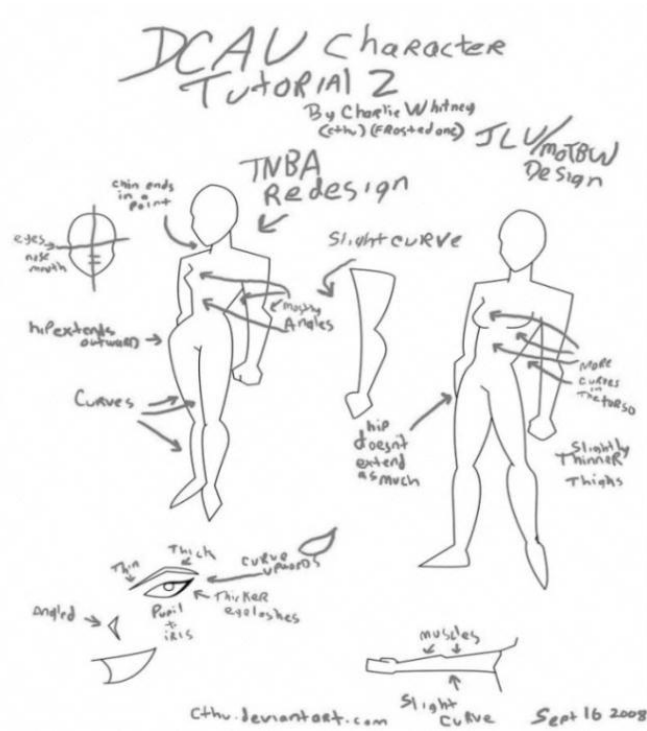 DCAU Character
Tutorial 2
By Charlie Whitney
(cthu) (Frostedone)
JLU/MOTBW
Design
TNBA
Redesign
chin ends
in a
point
eyes
nose
mouth
Slight curve
mostly
Angles
hip extends
outward
Curves
More
curves
in
The torso
hip
doesn't
extend
as much
Slightly
Thinner
Thighs
Thin
Thick
curve
upwards
Thicker
eyelashes
Angled
Pupil
+
iris
muscles
Slight
curve
cthu.deviantart.com
Sept 16 2008